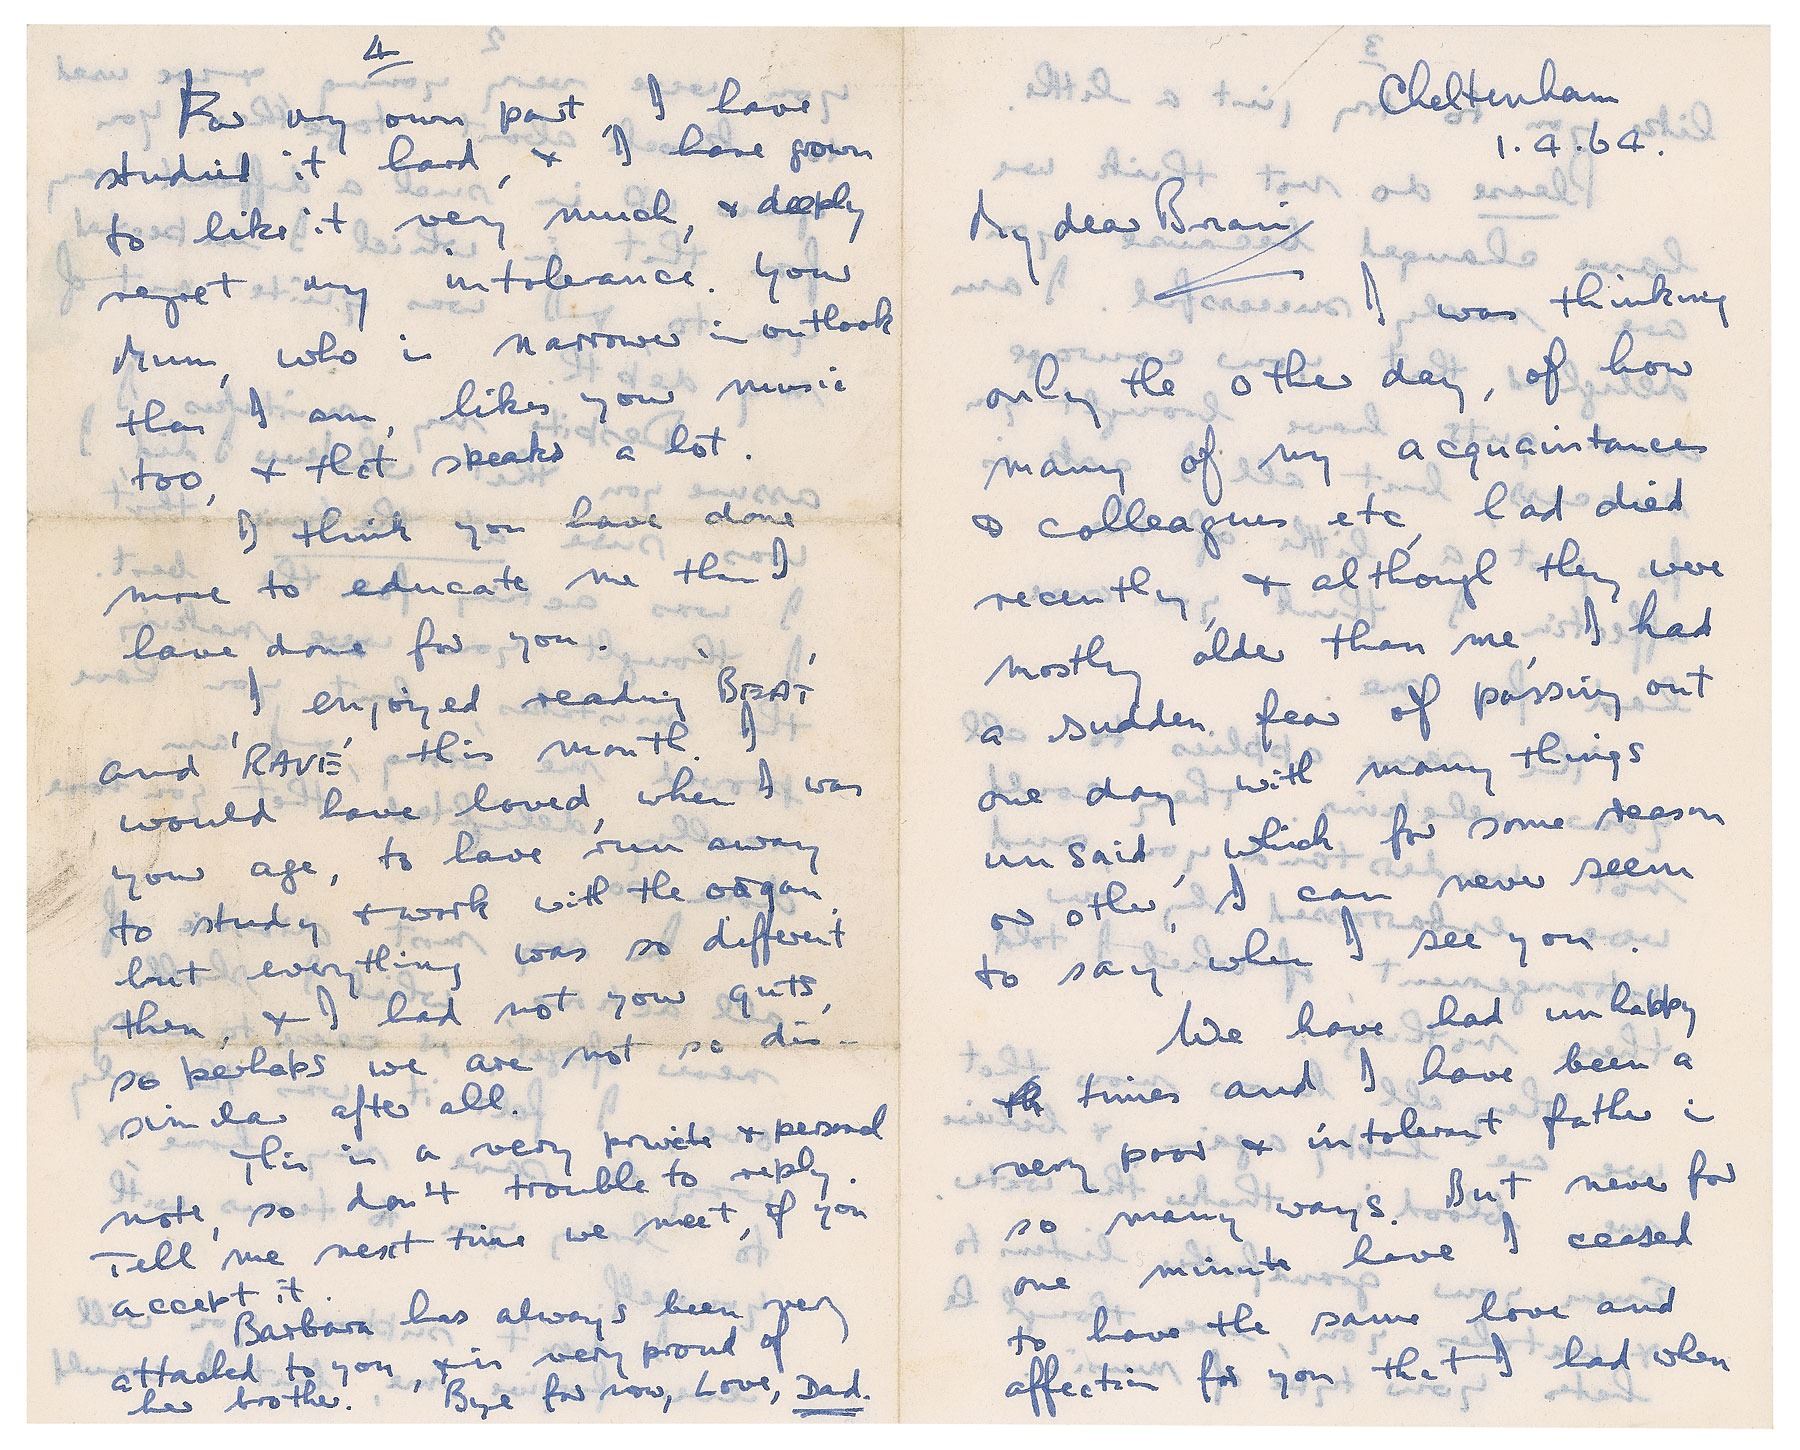 Cheltenham
1.4.64.
My dear Brian,
I was thinking
only the other day, of how
many of my acquaintances
& colleagues etc, had died
recently, & although they were
mostly older than me, I had
a sudden fear of passing out
one day with many things
unsaid, which for some reason
or other, I can never seem
to say when I see you.
We have had unhappy
times and I have been a
very poor & intolerant father in
so many ways. But never for
one minute have I ceased
to have the same love and
affection for you that I had when
4
For my own part, I have
studied it hard, & I have grown
to like it very much, & deeply
regret my intolerance. Your
Mum, who is narrower in outlook
than I am, likes your music
too, & that speaks a lot.
I think you have done
more to educate me than I
have done for you.
I enjoyed reading 'BEAT'
and 'RAVE' this month. I
would have loved, when I was
your age, to have run away
to study & work with the organ,
but everything was so different
then, & I had not your guts,
so perhaps we are not so dis-
similar after all.
This is a very private & personal
note, so don't trouble to reply.
Tell me next time we meet, if you
accept it.
Barbara has always been very
attached to you, & is very proud of
her brother. Bye for now, Love, Dad.